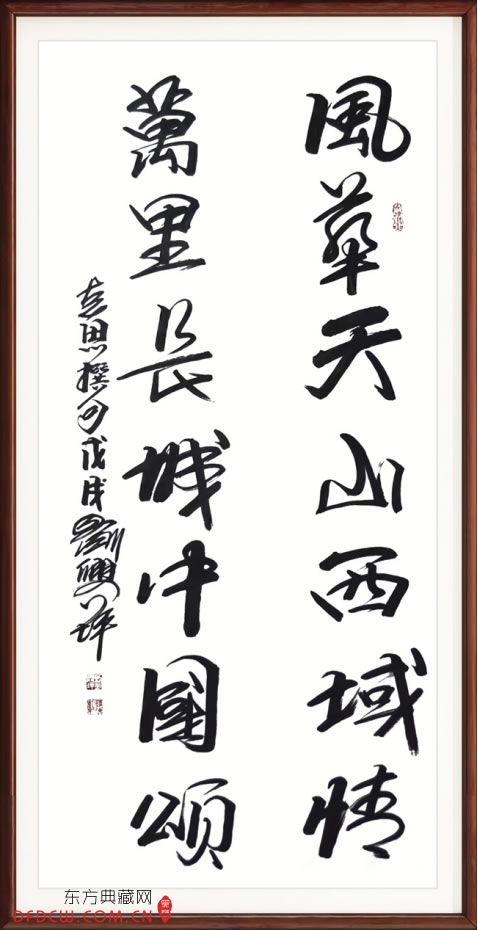 風華天山西域情
萬里長城中國頌
思撰句戊戌劉興萍
东方典藏网
DFDCW.COM.CN